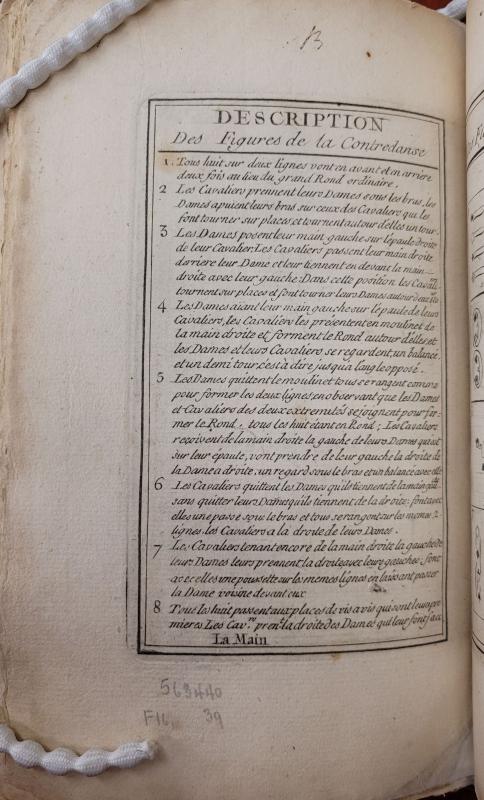 13
DESCRIPTION
Des Figures de la Contredanse
1. Tous huit sur deux lignes vont en avant et en arriere
deux fois au lieu du grand Rond ordinaire.
2 Les Cavaliers prennent leurs Dames sous les bras, les
Dames apuient leurs bras sur ceux des Cavaliers qui les
font tourner sur places et tournent autour d'elles un tour.
3 Les Dames posent leur main gauche sur l'epaule droite
de leur Cavalier. Les Cavaliers passent leur main droite
derriere leur Dame et leur tiennent en devant la main
droite avec leur gauche: Dans cette position les Caval.
tournent sur places et font tourner leurs Dames autour d'
4 Les Dames aiant leur main gauche sur l'epaule de leurs
Cavaliers, les Cavaliers les présentent en moulinet de
la main droite et forment le Rond autour d'elles et
les Dames et leurs Cavaliers se regardent, un balancé
et un demi tour, c'est à dire jusqu'a l'angle opposé.
5 Les Dames quittent le moulin et tous se rangent comme
pour former les deux lignes en observant que les Dames
et Cavaliers des deux extremités se joignent pour for-
mer le Rond, tous les huit étant en Rond; Les Cavaliers
reçoivent de la main droite la gauche de leurs Dames qui est
sur leur épaule, vont prendre de leur gauche la droite de
la Dame a droite, un regard sous le bras et un balancé avec elle
6 Les Cavaliers quittent les Dames qu'ils tiennent de la main
sans quitter leurs Dames qu'ils tiennent de la droite: font avec
elles une passe sous le bras et tous se rangent sur les memes 2
lignes. les Cavaliers a la droite de leurs Dames.
7 Les Cavaliers tenant encore de la main droite la gauche de
leurs Dames leurs prennent la droite avec leurs gauches, font
avec elles une poussette sur les memes lignes en laissant passer
la Dame voisine devant eux
8 Tous les huit passent aux places de vis a vis qui sont leurs pre
mieres Les Cav.rs pren.t la droite des Dames qui leur font face
La Main
563440
F16 39